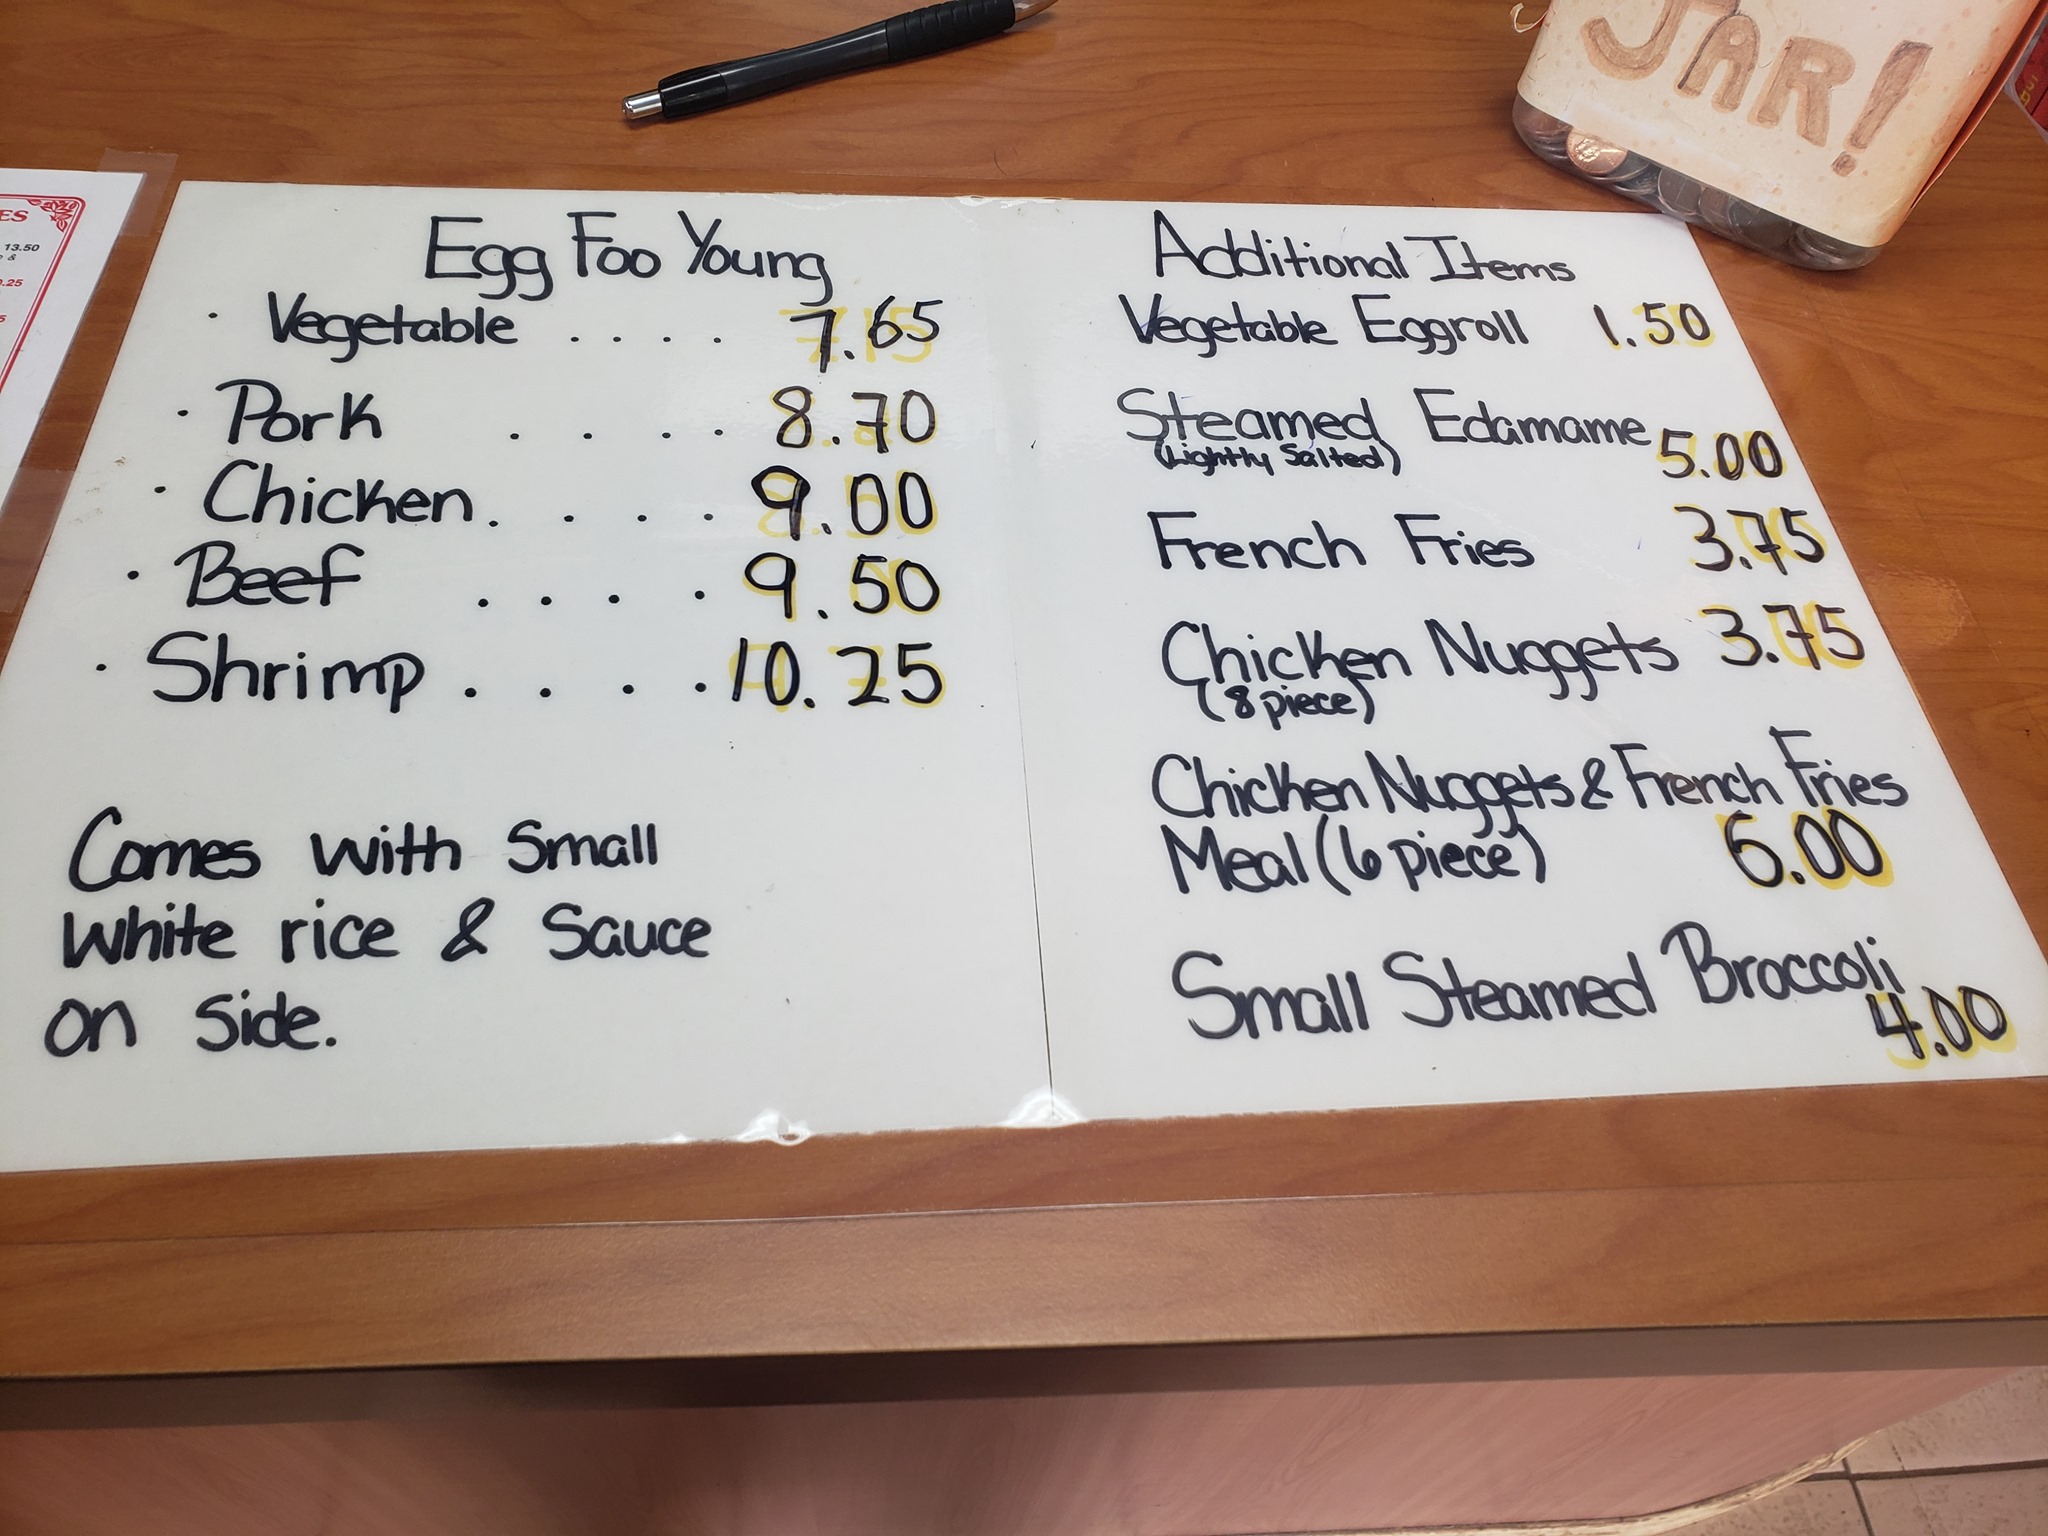 JAR!
ES
13.50
&
.25
Egg Foo Young
· Vegetable .... 7.65
· Pork .... 8.70
· Chicken .... 9.00
· Beef .... 9.50
· Shrimp .... 10.25
Comes with Small
white rice & Sauce
on side.
Additional Items
Vegetable Eggroll 1.50
Steamed Edamame 5.00
(Lightly Salted)
French Fries 3.75
Chicken Nuggets 3.75
(8 piece)
Chicken Nuggets & French Fries
Meal (6 piece) 6.00
Small Steamed Broccoli
4.00